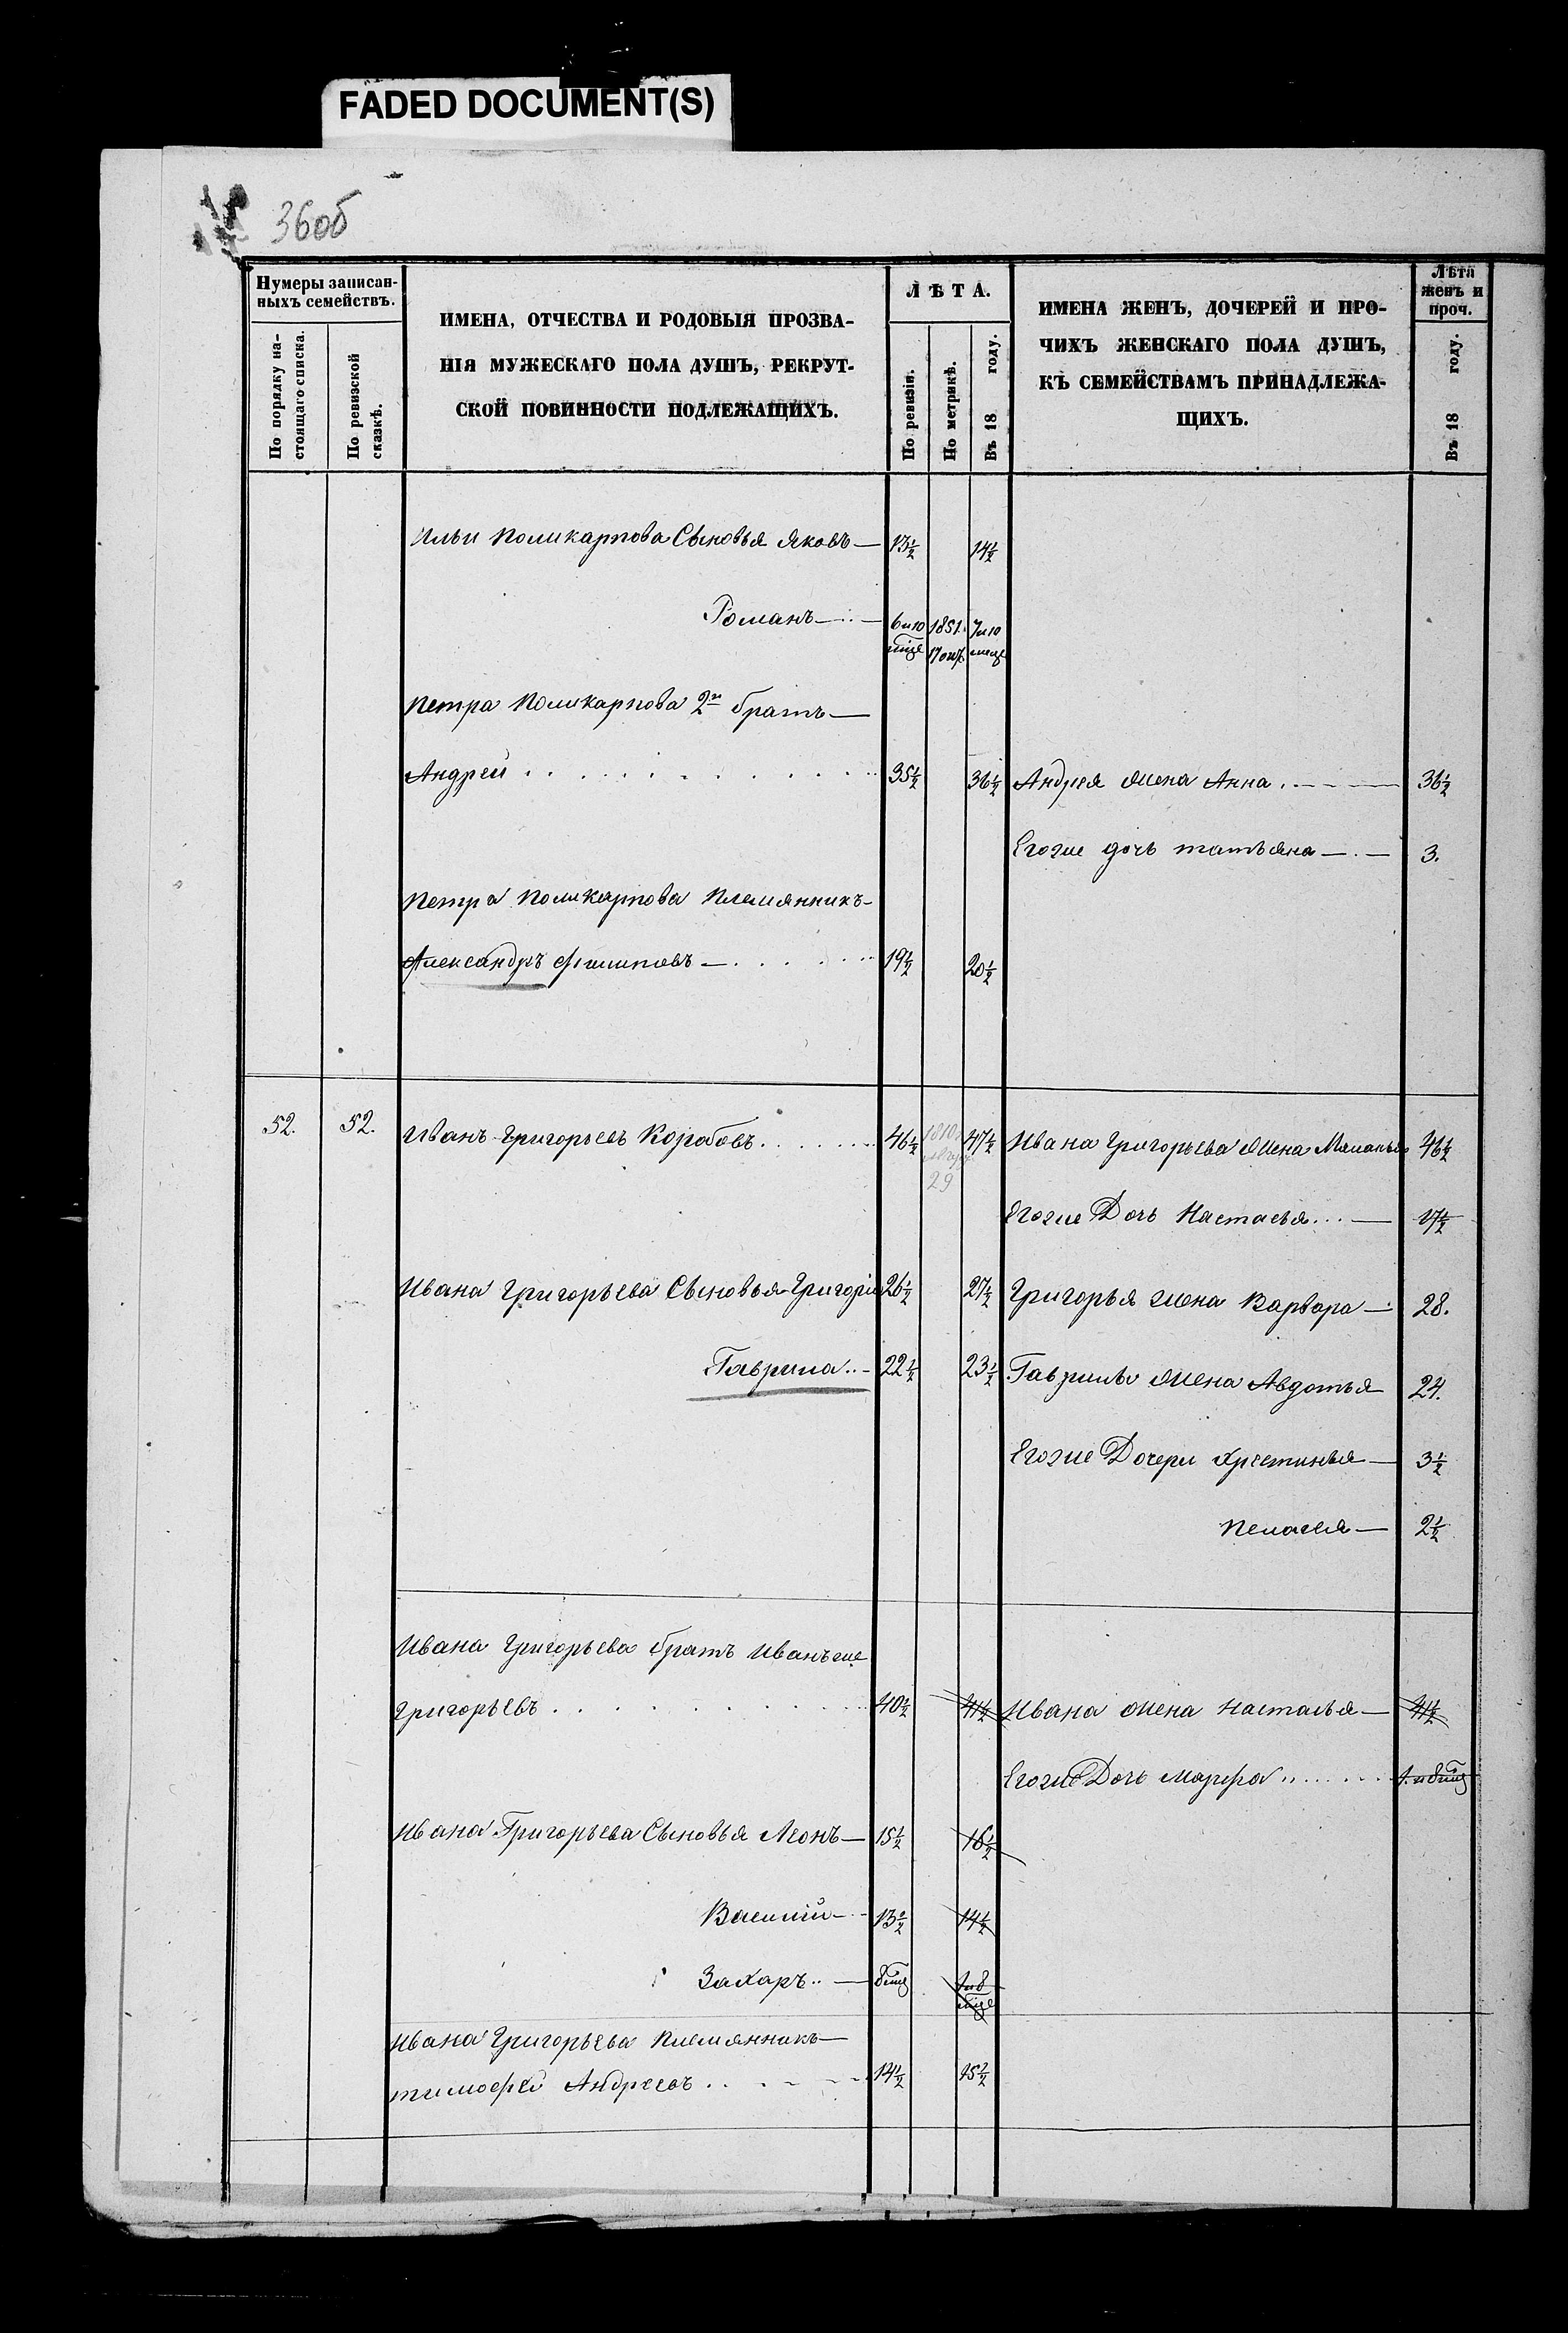 FADED DOCUMENT(S)
36об
Нумеры записан-
ныхъ семействъ.
По порядку на-
стоящаго списка.
По ревизской
сказкѣ.
ИМЕНА, ОТЧЕСТВА И РОДОВЫЯ ПРОЗВА-
НІЯ МУЖЕСКАГО ПОЛА ДУШЪ, РЕКРУТ-
СКОЙ ПОВИННОСТИ ПОДЛЕЖАЩИХЪ.
ЛѢТА.
По ревизіи.
По метрикѣ.
Въ 18 году.
ИМЕНА ЖЕНЪ, ДОЧЕРЕЙ И ПРО-
ЧИХЪ ЖЕНСКАГО ПОЛА ДУШЪ,
КЪ СЕМЕЙСТВАМЪ ПРИНАДЛЕЖА-
ЩИХЪ.
Лѣта
женъ и
проч.
Въ 18 году.
Ильи Поликарпова Сыновья Яковъ — 13½ 14½
Романъ — 6 и 10 мце 1851. 17 окт 7 и 10 меце
Петра Поликарпова 2й братъ —
Андрей 35½ 36½ Андрея жена Анна 36½
Егоже дочь татьяна — 3.
Петра Поликарпова Племянникъ —
Александръ Филиповъ — 19½ 20½
52. 52. Иванъ Григорьевъ Коробовъ 46½ 1810 29 47½ Ивана Григорьева жена Маланья 46½
Егоже Дочь Настасья — 17½
Ивана Григорьева Сыновья Григорій 26½ 27½ Григорья жена Варвара — 28.
Гаврила — 22½ 23½ Гаврилы жена Авдотья 24.
Егоже Дочери Хрестинья — 3½
Пелагея — 2½
Ивана Григорьева братъ Иванъ же
Григорьевъ 40½ 41½ Ивана жена Настасья — 41½
Егоже Дочь Марфа
Ивана Григорьева Сыновья Леонъ — 15½ 16½
Василій — 13½ 14½
Захаръ — 8 мце 1 и 8 мце
Ивана Григорьева Племянникъ —
тимофей Андреевъ 14½ 15½